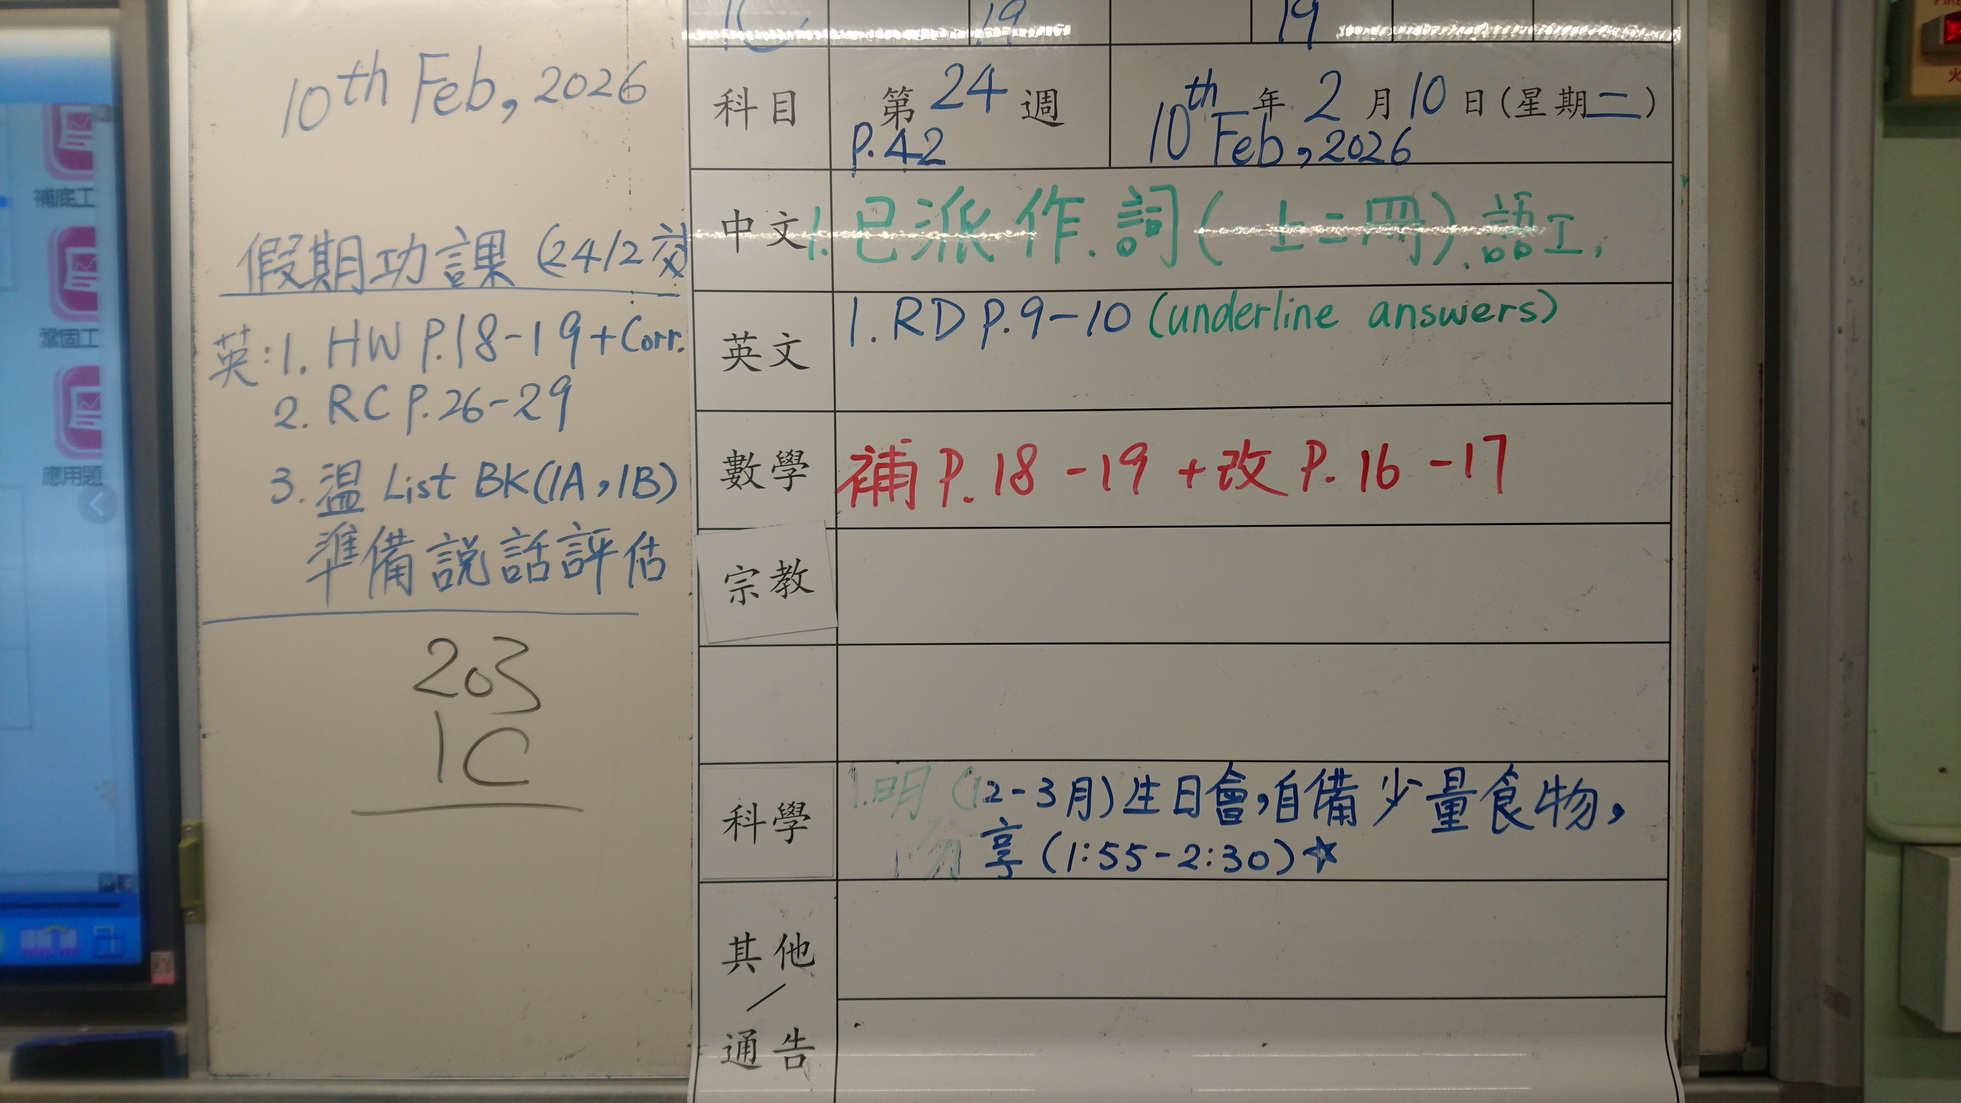 10th Feb, 2026
假期功課 (24/2 交
英:1. HW P.18-19+Corr.
2. RC P.26-29
3. 溫 List BK(1A,1B)
準備說話評估
203
1C
補底工
鞏固工
應用題
1C 19 19
科目 第 24 週 年 2 月 10 日(星期二)
P.42 10th Feb, 2026
中文 1. 已派作.詞(一上二冊).語工.
英文 1. RD P.9-10 (underline answers)
數學 補 P.18-19+改 P.16-17
宗教
科學 1.明 (12-3月)生日會,自備少量食物,
分享 (1:55-2:30)☆
其他
/
通告